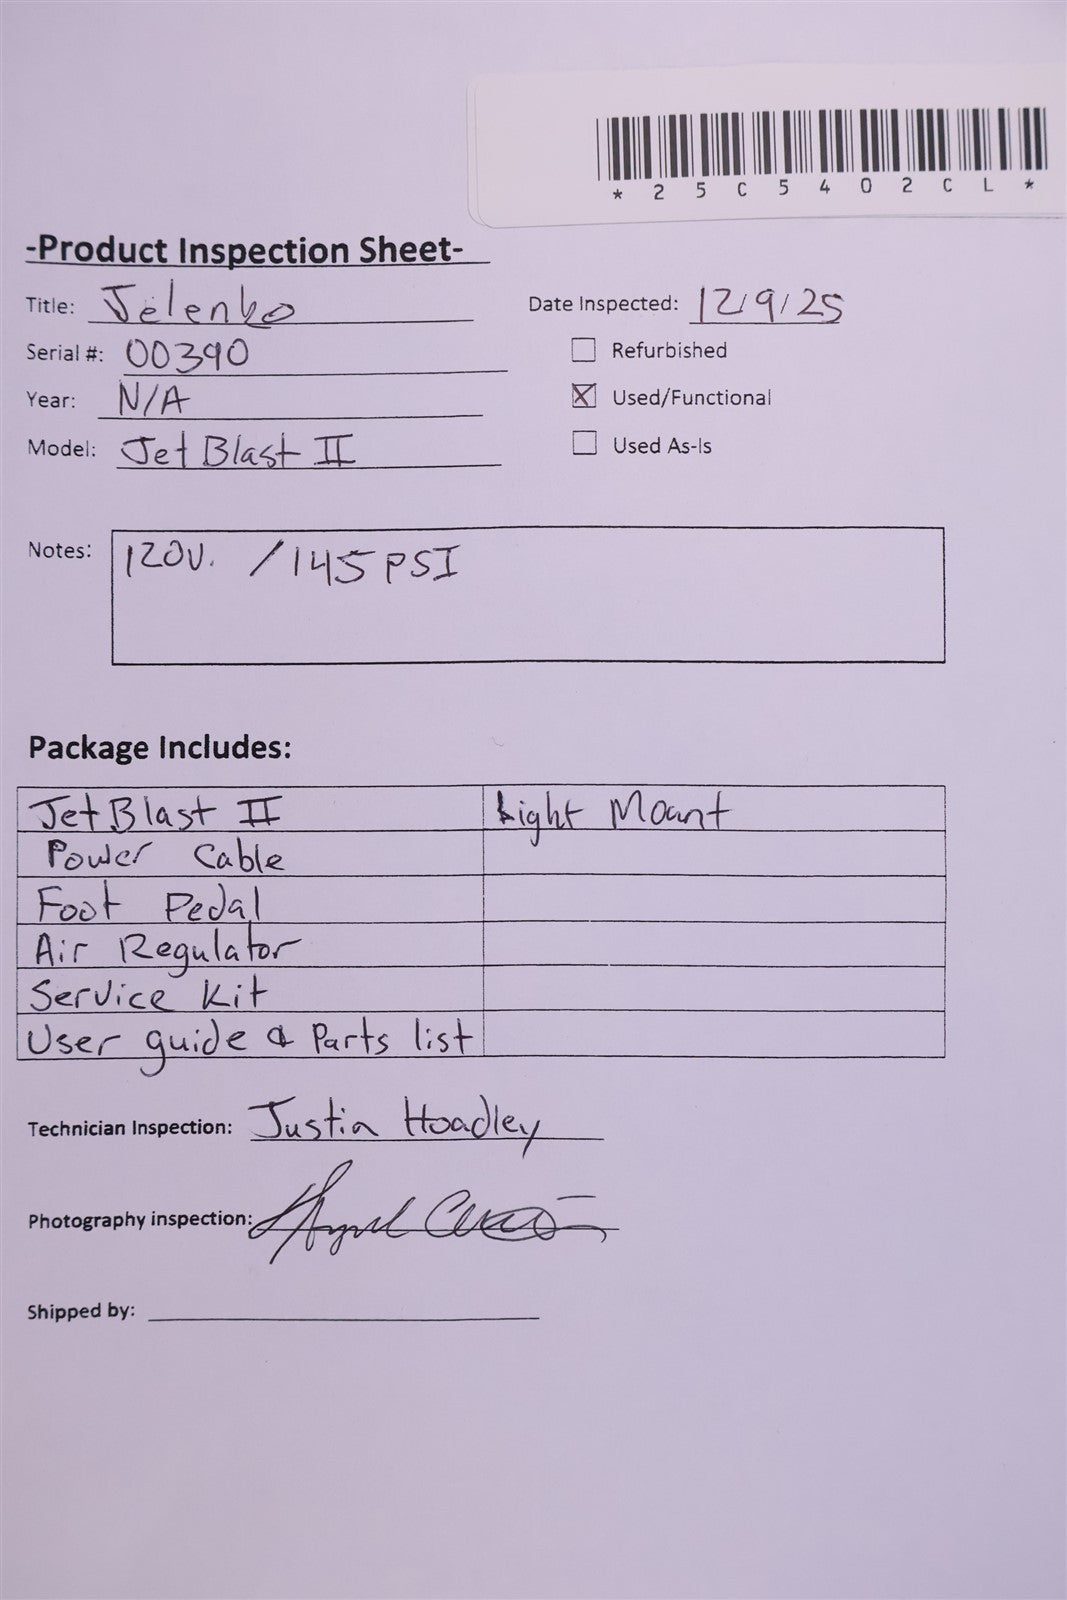 *25C5402CL*
-Product Inspection Sheet-
Title: Jelenko
Date Inspected: 12/9/25
Serial #: 00390
Refurbished
Year: N/A
Used/Functional
Model: Jet Blast II
Used As-Is
Notes: 120V. / 145 PSI
Package Includes:
Jet Blast II Light Mount
Power Cable
Foot Pedal
Air Regulator
Service Kit
User guide & Parts list
Technician Inspection: Justin Hoadley
Photography inspection:
Shipped by: